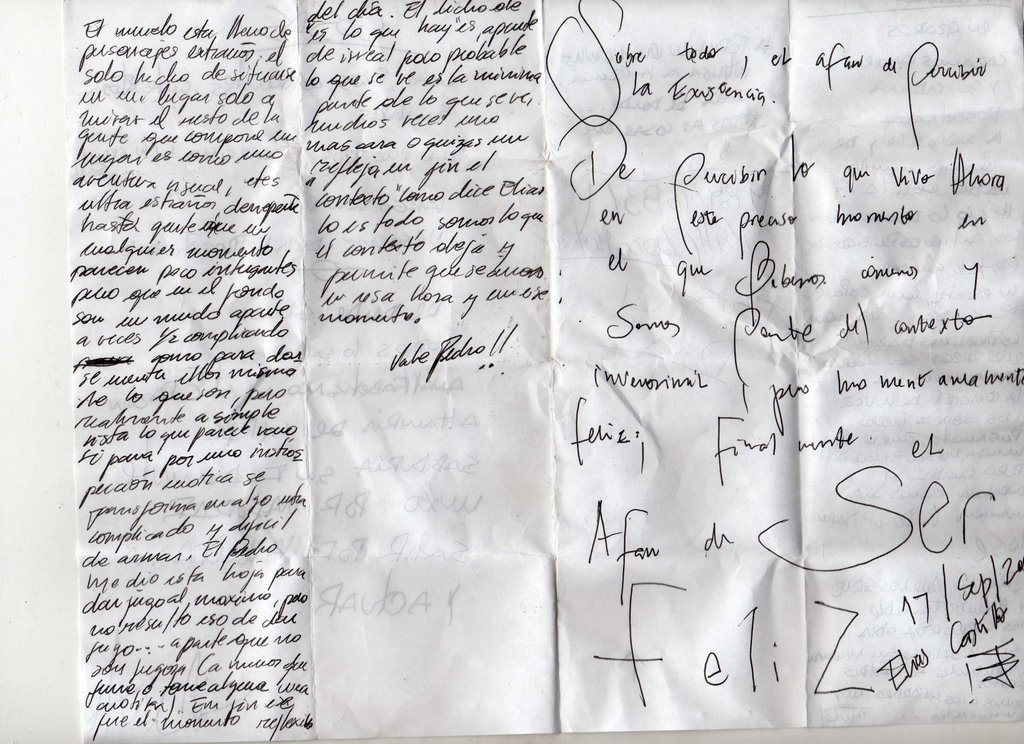 El mundo esta lleno de
personajes extraños, el
solo hecho de situarse
en un lugar solo a
mirar el resto de la
gente que compone un
lugar es como una
aventura visual, etes
ultra estraños derrepente
hasta gente que en
cualquier momento
parecen poco intrigantes
pero que en el fondo
son un mundo aparte
a veces complicando
como para dar
se cuenta ellos mismo
de lo que son, pero
realmente a simple
vista lo que parece vano
si pasa por una
caótica se
transforma en algo ultra
complicado y dificil
de armar. El Pedro
me dio esta hoja para
dar jugo al maximo, pero
no resulto eso de dar
jugo.... aparte que no
son jugosa (a menos que
fuma, o tome alguna
). Em fin ese
fue el momento reflexivo
del día. El dicho de
"es lo que hay" es aparte
de irreal poco probable
lo que se ve es la minima
parte de lo que se ve,
muchas veces una
mascara o quizas un
reflejo, en fin el
"contexto" como dice Elias
lo es todo somos lo que
el contexto deja y
permite que seamos
en esa hora y en ese
momento.
Vale Pedro!!
Sobre todo, el afan de percibir
la Existencia.
De percibir lo que vivo Ahora
en este preciso momento en
el que bebemos comemos y
Somos parte del contexto
pero momentaneamente
feliz; Finalmente el
Afan de Ser
FeliZ
17/Sep/20
Elias Castillo